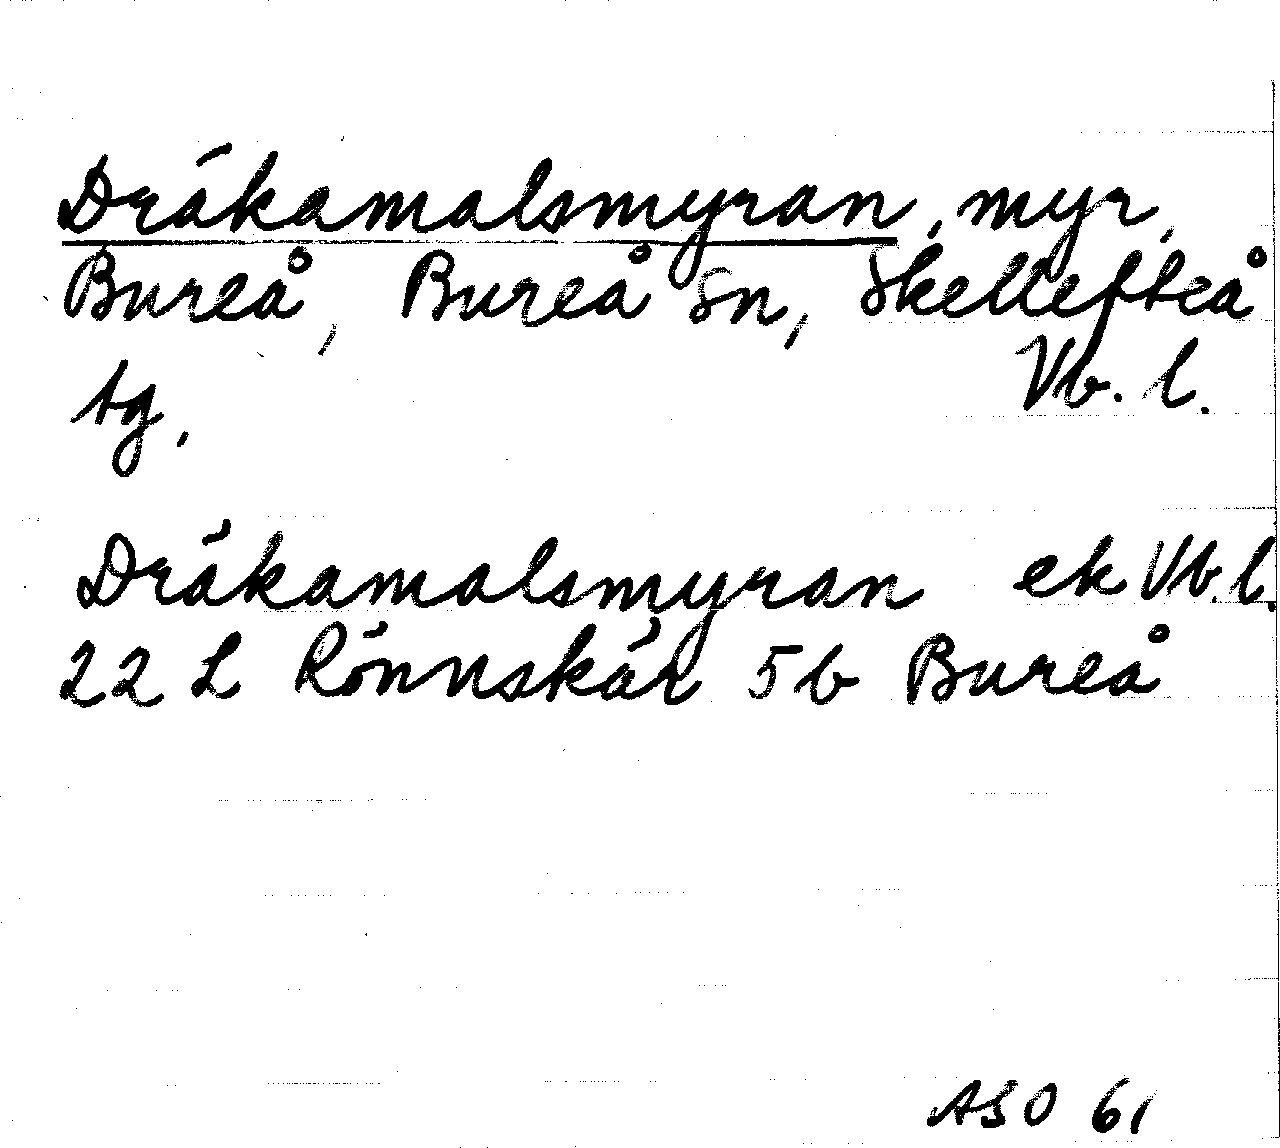 Dräkamalsmyran, myr,
Bureå, Bureå sn, Skellefteå
tg. Vb. l.
Dräkamalsmyran ek Vb. l.
22 L Rönnskär 5 b Bureå
ASO 61